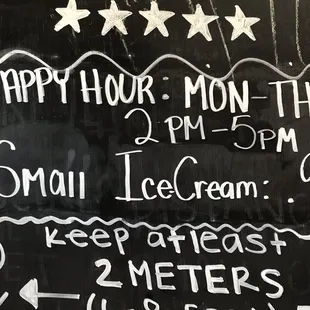 APPY HOUR: MON-TH
2PM-5PM
Small IceCream: .
Keep atleast
2 METERS